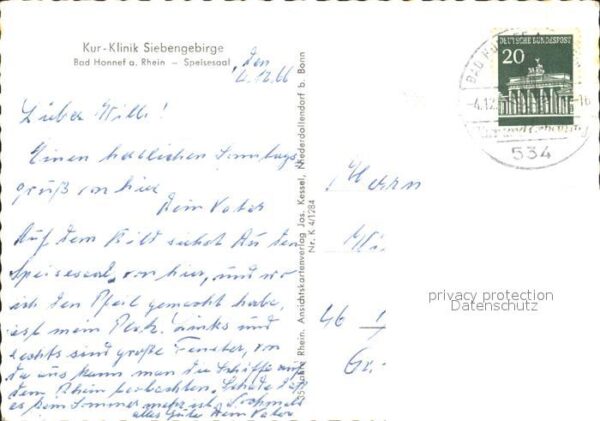 Kur-Klinik Siebengebirge
Bad Honnef a. Rhein – Speisesaal, den
4.12.66
Lieber Willi!
Einen herzlichen Sonntags
gruß von hier
Dein Vater
Auf dem Bild siehst Du den
Speisesaal, von hier, und wo
ich den Pfeil gemacht habe,
ist mein Platz. Links und
rechts sind große Fenster, von
da aus kann man die Schiffe auf
dem Rhein beobachten. Schade daß
es kein Sommer mehr ist. Nochmals
alles Gute Dein Vater
35 Jahre Rhein. Ansichtskartenverlag Jos. Kessel, Niederdollendorf b. Bonn
Nr. K 4/1284
DEUTSCHE BUNDESPOST
20
BAD HONNEF
-4.12
-16
534
Herrn
Wi.
46
Gr.
privacy protection
Datenschutz